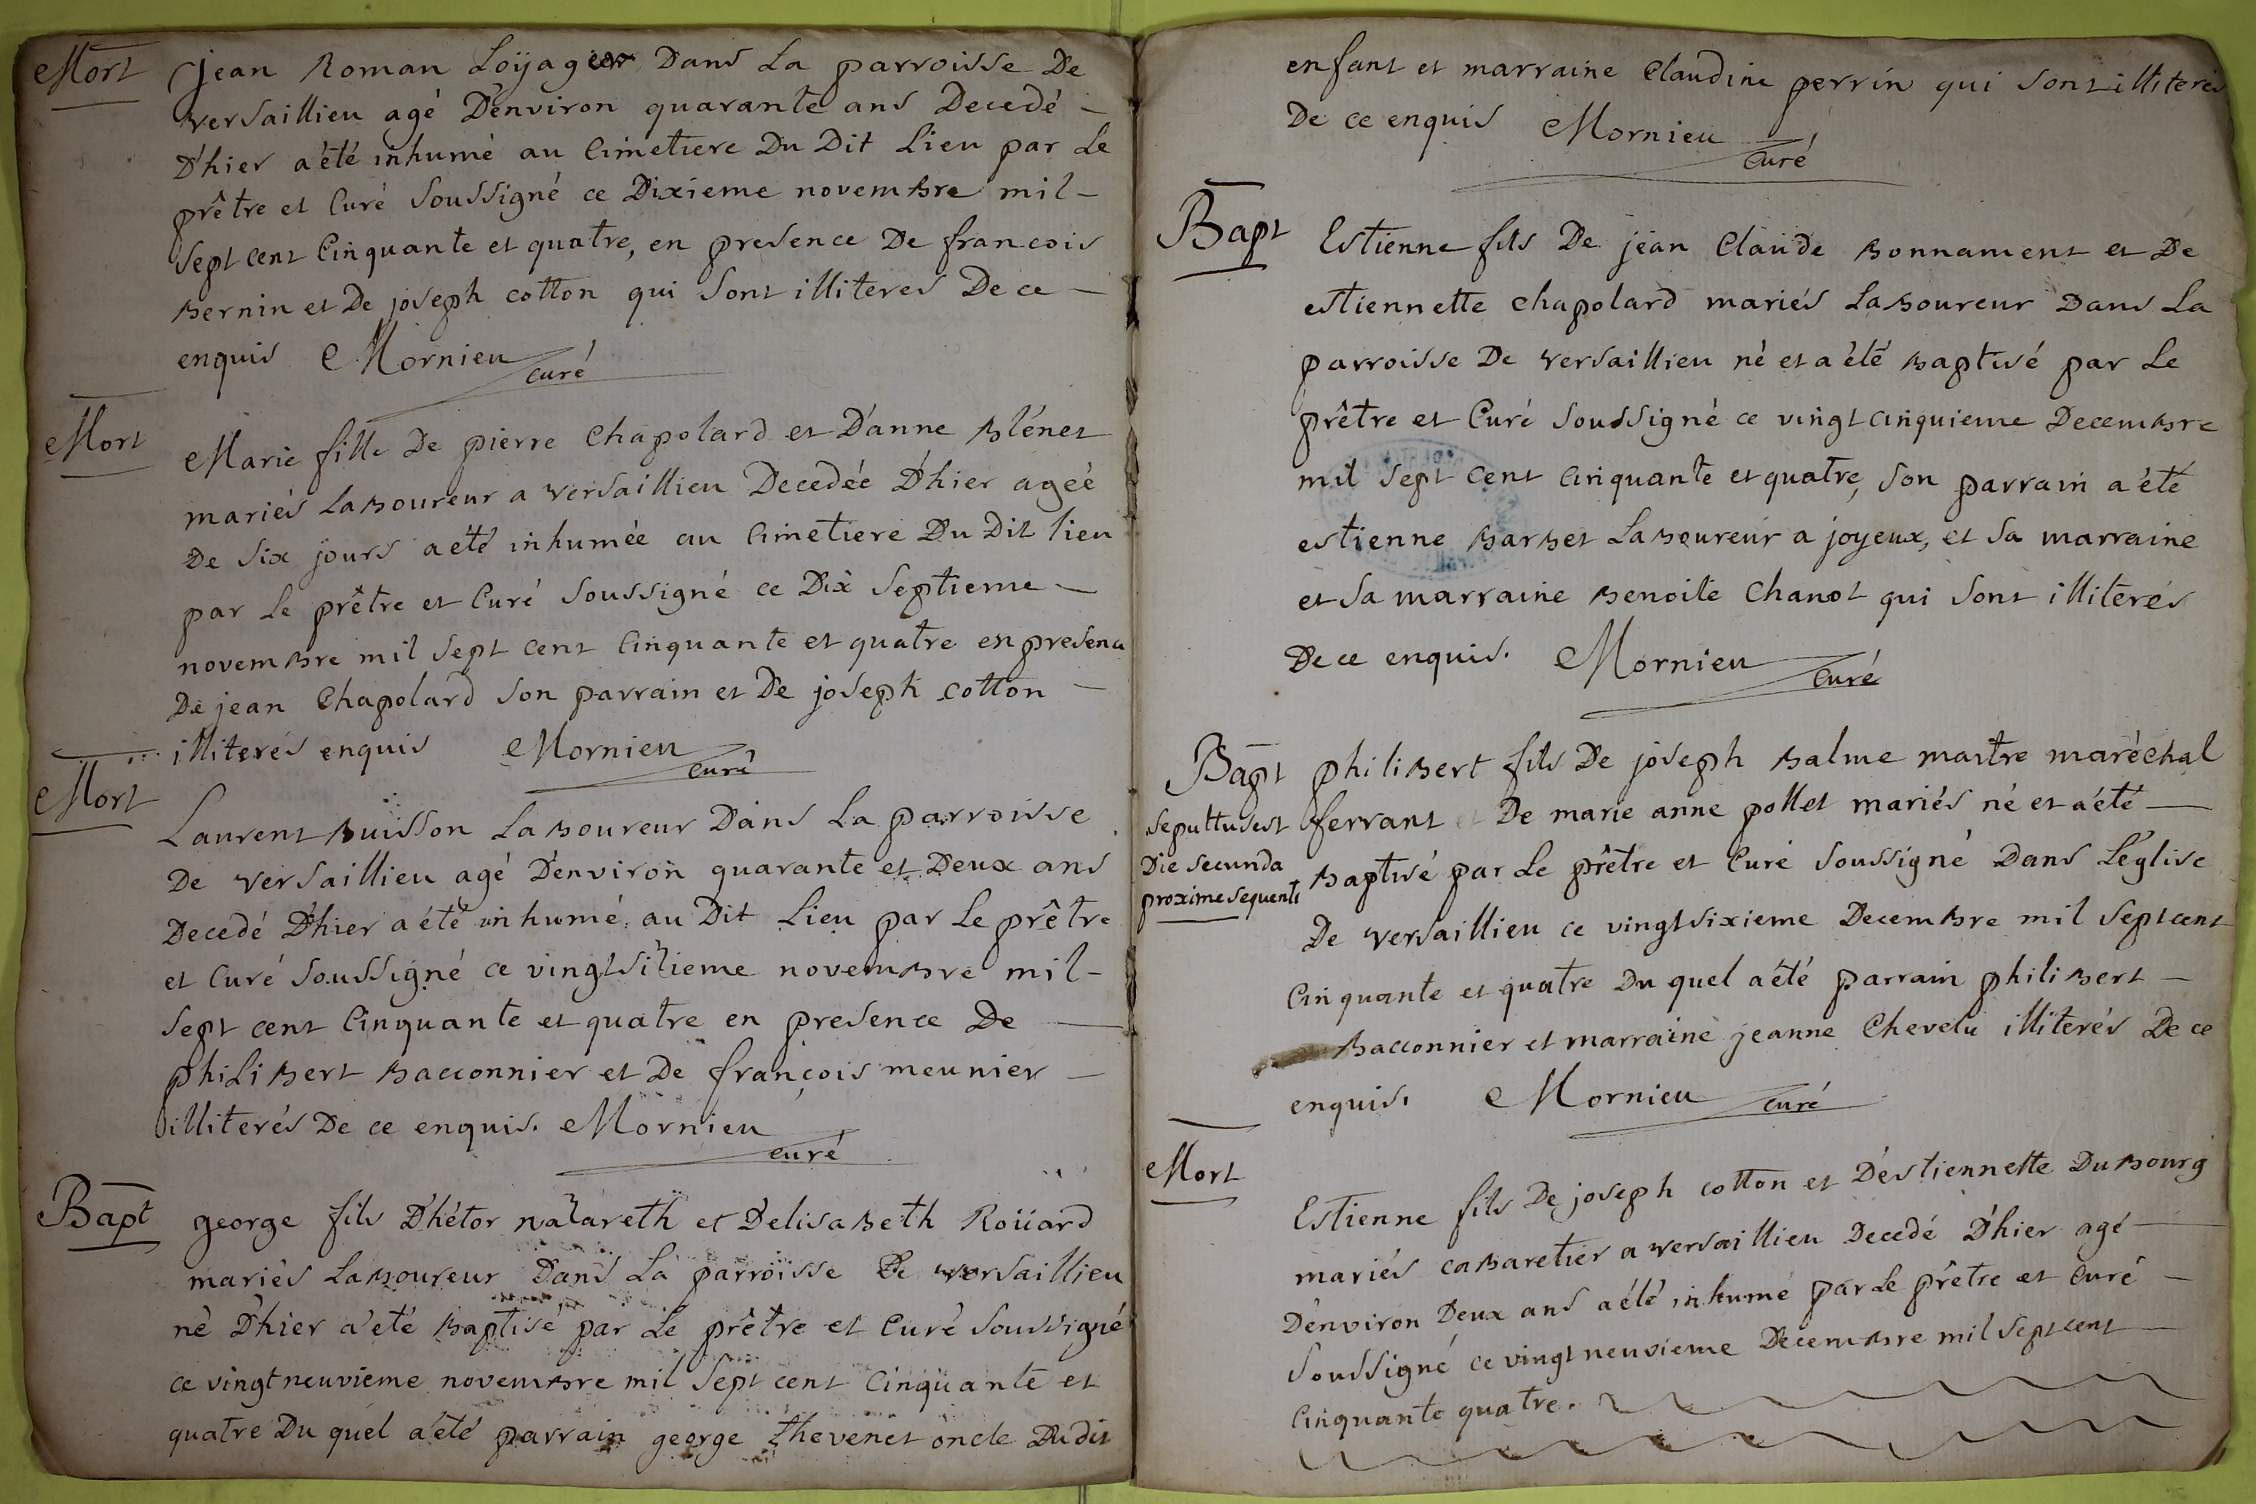 Mort
jean Roman Loÿager Dans La parroisse De
versaillieu agé D'environ quarante ans Decedé -
D'hier a été inhumé au Cimetiere Du Dit Lieu par Le
prêtre et Curé Soussigné ce Dixieme novembre mil-
Sept cent Cinquante et quatre, en presence De francois
Bernin et De joseph cotton qui Sont illiteres De ce -
enquis Mornieu
curé
Mort
Marie fille De pierre Chapolard et D'anne Blénet
mariés Laboureur a versaillieu Decedéé D'hier ageé
De Six jours a été inhumée au Cimetiere Du Dit lieu
par Le prêtre et Curé Soussigné ce Dix Septieme -
novembre mil Sept cent Cinquante et quatre en presence
De jean Chapolard Son parrain et De joseph cotton -
illiterés enquis Mornieu
curé
Mort
Laurent Buisson Laboureur Dans La parroisse
De versaillieu agé D'environ quarante et Deux ans
Decedé D'hier a été inhumé au Dit Lieu par Le prêtre
et Curé Soussigné ce vingt sizieme novembre mil-
Sept cent Cinquante et quatre en presence De
philibert Bacconnier et De françois meunier -
illiterés De ce enquis. Mornieu
curé
Bapt
george fils D'hétor nazareth et D'elisabeth Roüard
mariés Laboureur Dans La parroisse De versaillieu
né D'hier a été Baptisé par Le prêtre et Curé Soussigné
ce vingt neuvieme novembre mil Sept cent Cinquante et
quatre Du quel a été parrain george thevenet oncle Dudit
enfant et marraine Claudine perrin qui Sont illiterés
De ce enquis Mornieu
Curé
Bapt
Estienne fils De jean Claude Bonnament et De
estiennette chapolard mariés Laboureur Dans La
parroisse De versaillieu né et a été Baptisé par Le
prêtre et Curé Soussigné ce vingt cinquieme Decembre
mil Sept Cent Cinquante et quatre, Son parrain a été
estienne Barbet Laboureur a joyeux, et Sa marraine
et Sa marraine Benoite Chanot qui Sont illiterés
De ce enquis. Mornieu
Curé
Bapt
Sepultus est
Die Secunda
proxime Sequenti
philibert fils De joseph Balme maitre maréchal
ferrant et De marie anne pollet mariés né et a été -
Baptisé par Le prêtre et Curé Soussigné Dans L'église
De versaillieu ce vingt sixieme Decembre mil Sept cent
Cinquante et quatre Du quel a été parrain philibert -
Bacconnier et marraine jeanne Chevelu illiterés De ce
enquis. Mornieu
curé
Mort
Estienne fils De joseph cotton et D'estiennette Dubourg
mariés cabaretier a versaillieu Decedé D'hier agé -
D'environ Deux ans a été inhumé par Le prêtre et Curé -
Soussigné ce vingt neuvieme Decembre mil Sept cent -
Cinquante quatre.